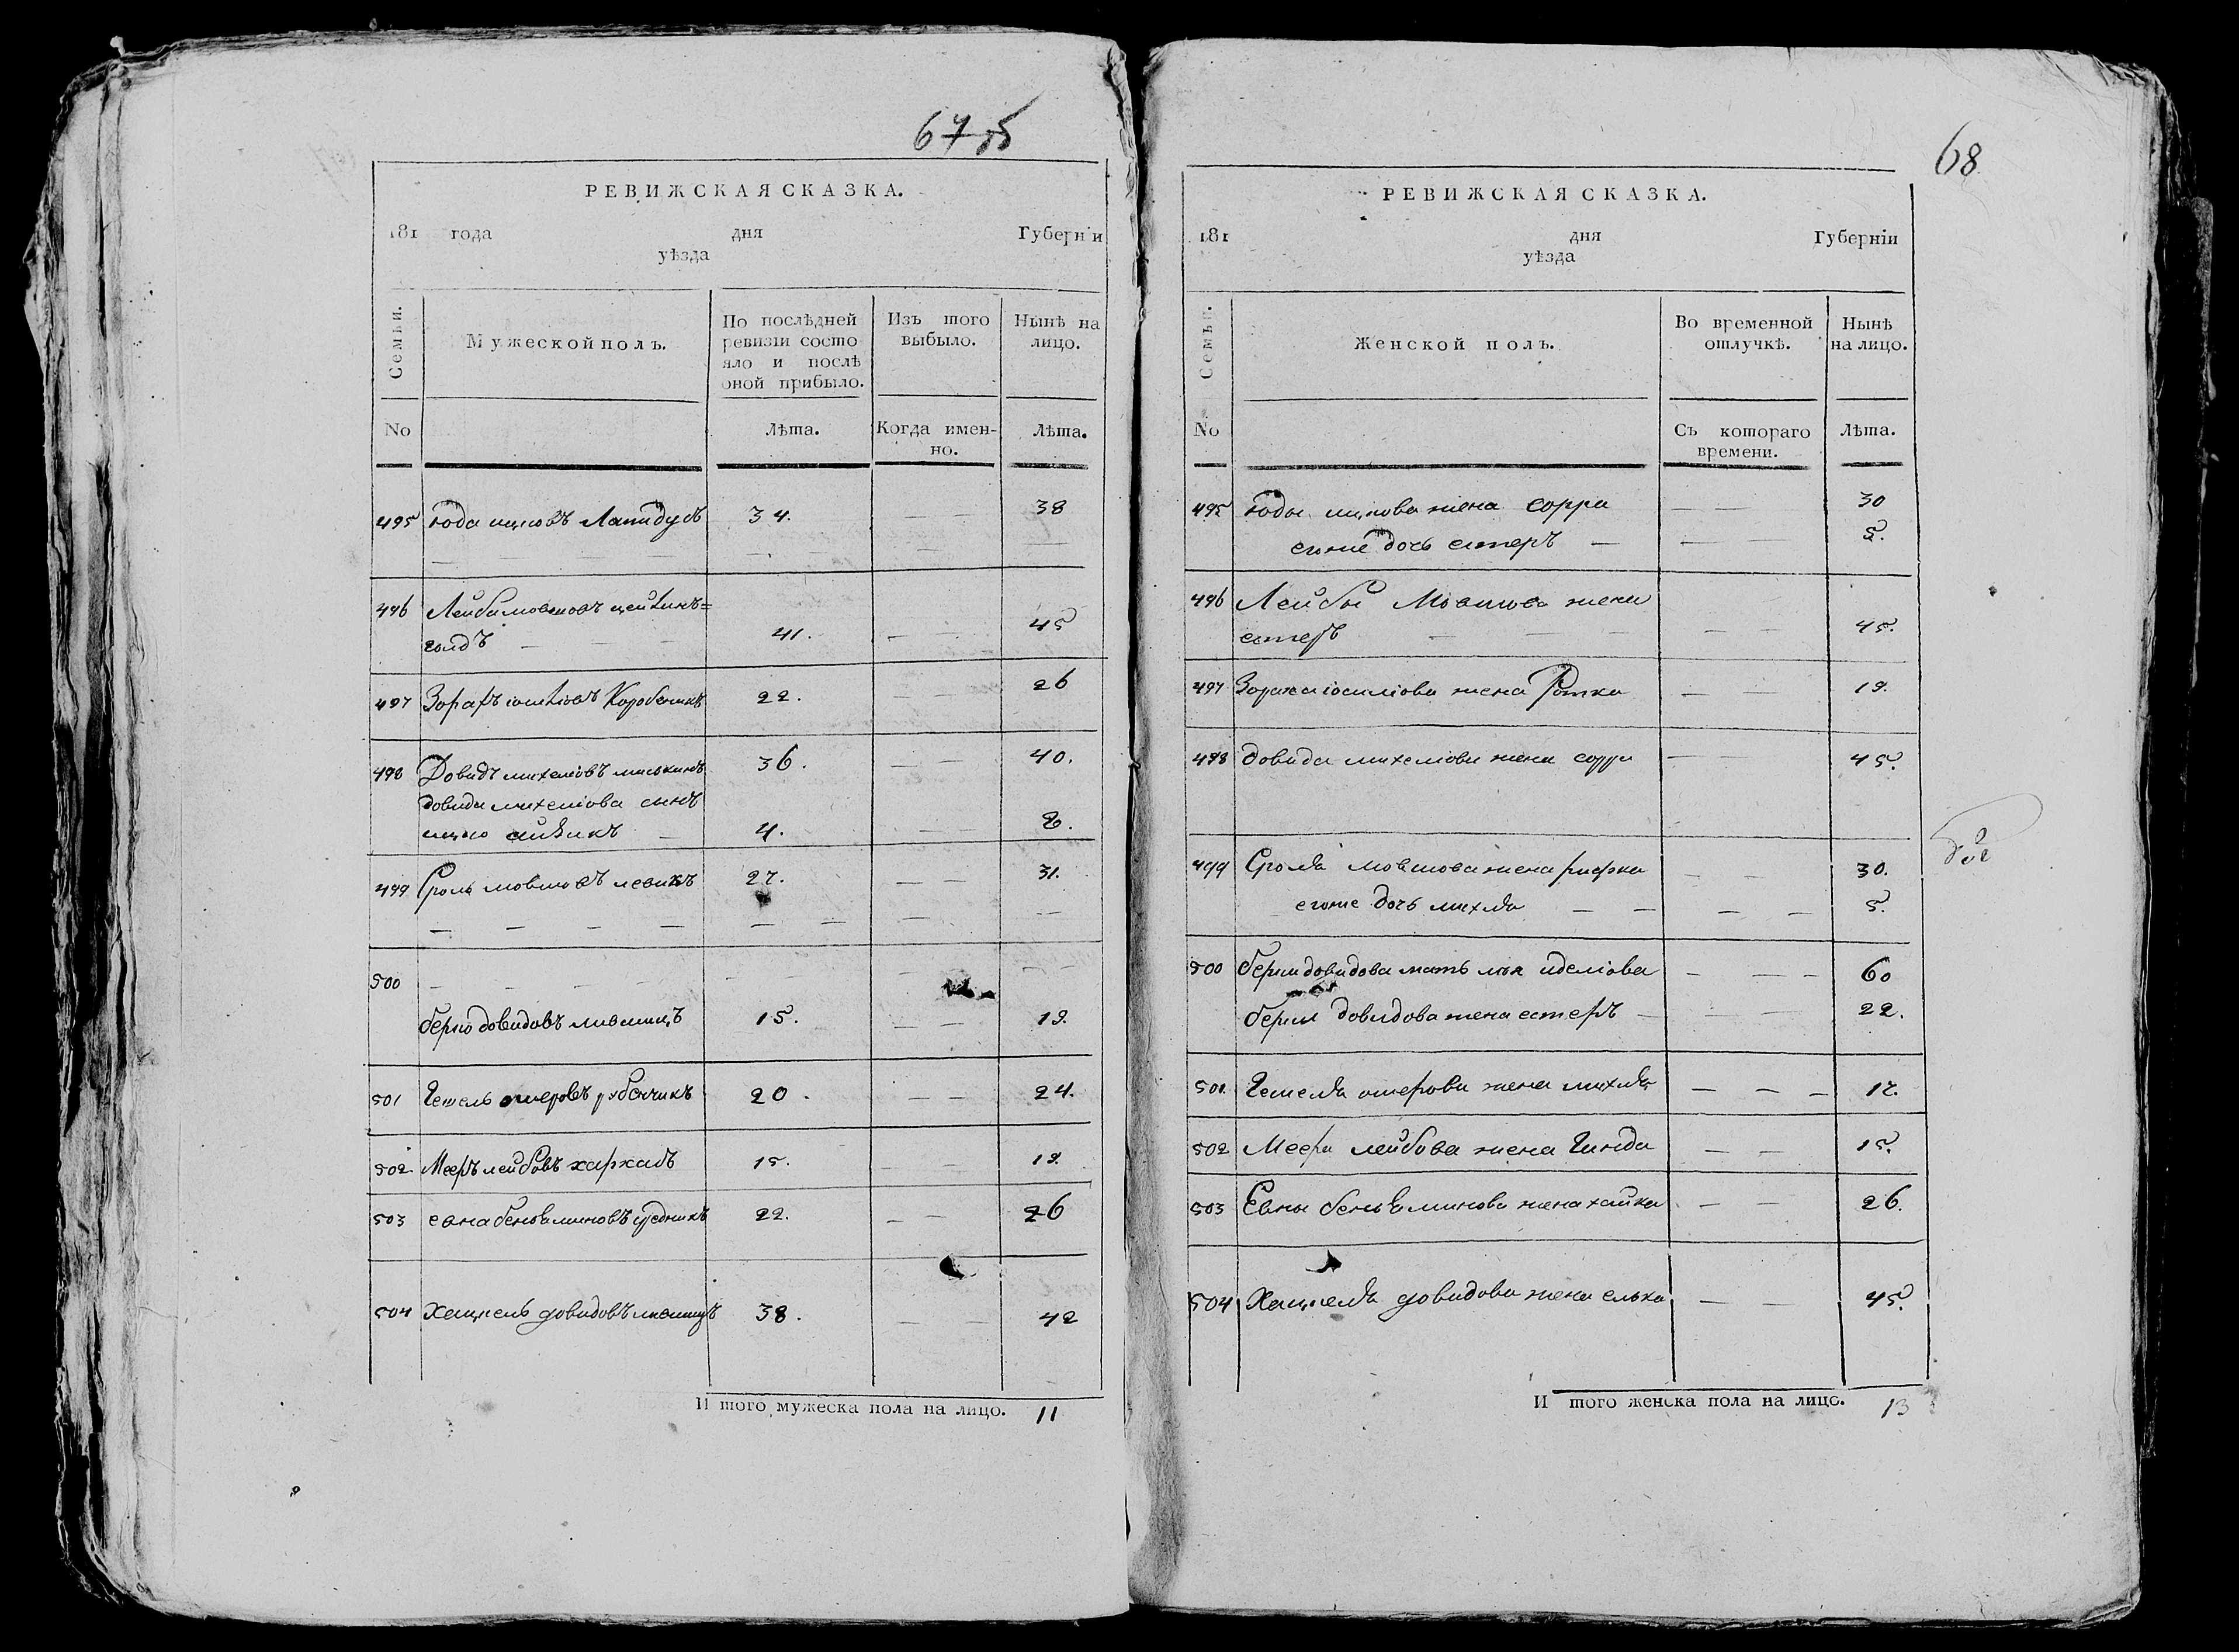 67 об
РЕВИЖСКАЯ СКАЗКА.
181 года дня Губернїи
уѣзда
Семьи.
Мужеской полъ.
По послѣдней ревизїи состо яло и послѣ оной прибыло.
Изъ того выбыло.
Нынѣ на лицо.
No
Лѣта.
Когда имен-но.
Лѣта.
495 Юда ицковъ Лапидусъ 34. — — 38
496 Лейба мовшовъ цейтин=
голдъ — — 41. — — 45
497 Зорахъ Коробочникъ 22. — — 26
498 Довидъ михелїовъ 36. — — 40.
довида михелїова сынъ
ицко айзикъ — 4. — 8.
499 Сроль мовшовъ левинъ 27. — — 31.
— — — — — — — —
500 — — — — — — — — —
берко довидовъ лившицъ 15. — — 19.
501 Гешель ошеровъ рубенчикъ 20. — — 24.
502 Мееръ лейбовъ 15. — — 19.
503 евна беньяминовъ 22. — — 26
504 Хацкель довидовъ лившицъ 38. — — 42
И того мужеска пола на лицо. 11
68
РЕВИЖСКАЯ СКАЗКА.
181 дня Губернїи
уѣзда
Семьи.
Женской полъ.
Во временной отлучкѣ.
Нынѣ на лицо.
No
Съ котораго времени.
Лѣта.
495 Юды ицкова жена сорра — — 30
егоже дочь естеръ — — — 5.
496 Лейбы Мовшова жена
естеръ — — — — — 45.
497 Зораха жена — — 19.
498 довида михелїова жена сорра — — 45.
499 Сроля мовшова жена рифка — — 30.
егоже дочь михля — — — — 5.
500 берки довидова мать иделїова — — — 60
берки довидова жена естеръ — — — 22.
501. Гешеля ошерова жена михля — — — 17.
502 Меера лейбова жена Гинда — — 15.
503 Евны беньяминова жена хайка — — 26.
504 Хацкеля довидова жена елька — — 45.
И того женска пола на лицо. 13